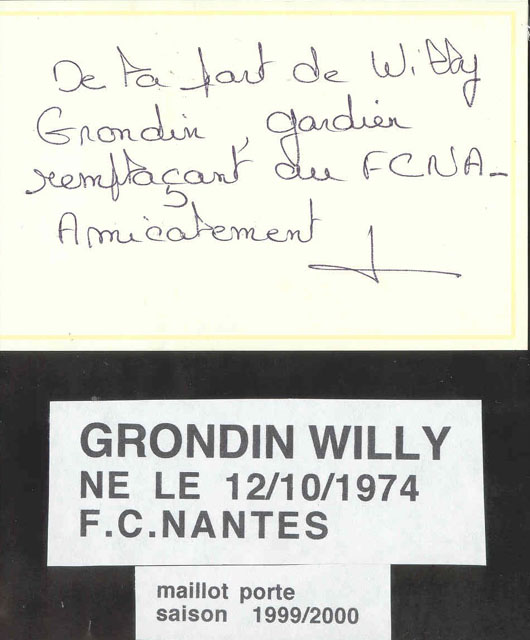 De la part de Willy
Grondin, gardien
remplaçant du FCNA_
Amicalement
GRONDIN WILLY
NE LE 12/10/1974
F.C.NANTES
maillot porte
saison 1999/2000